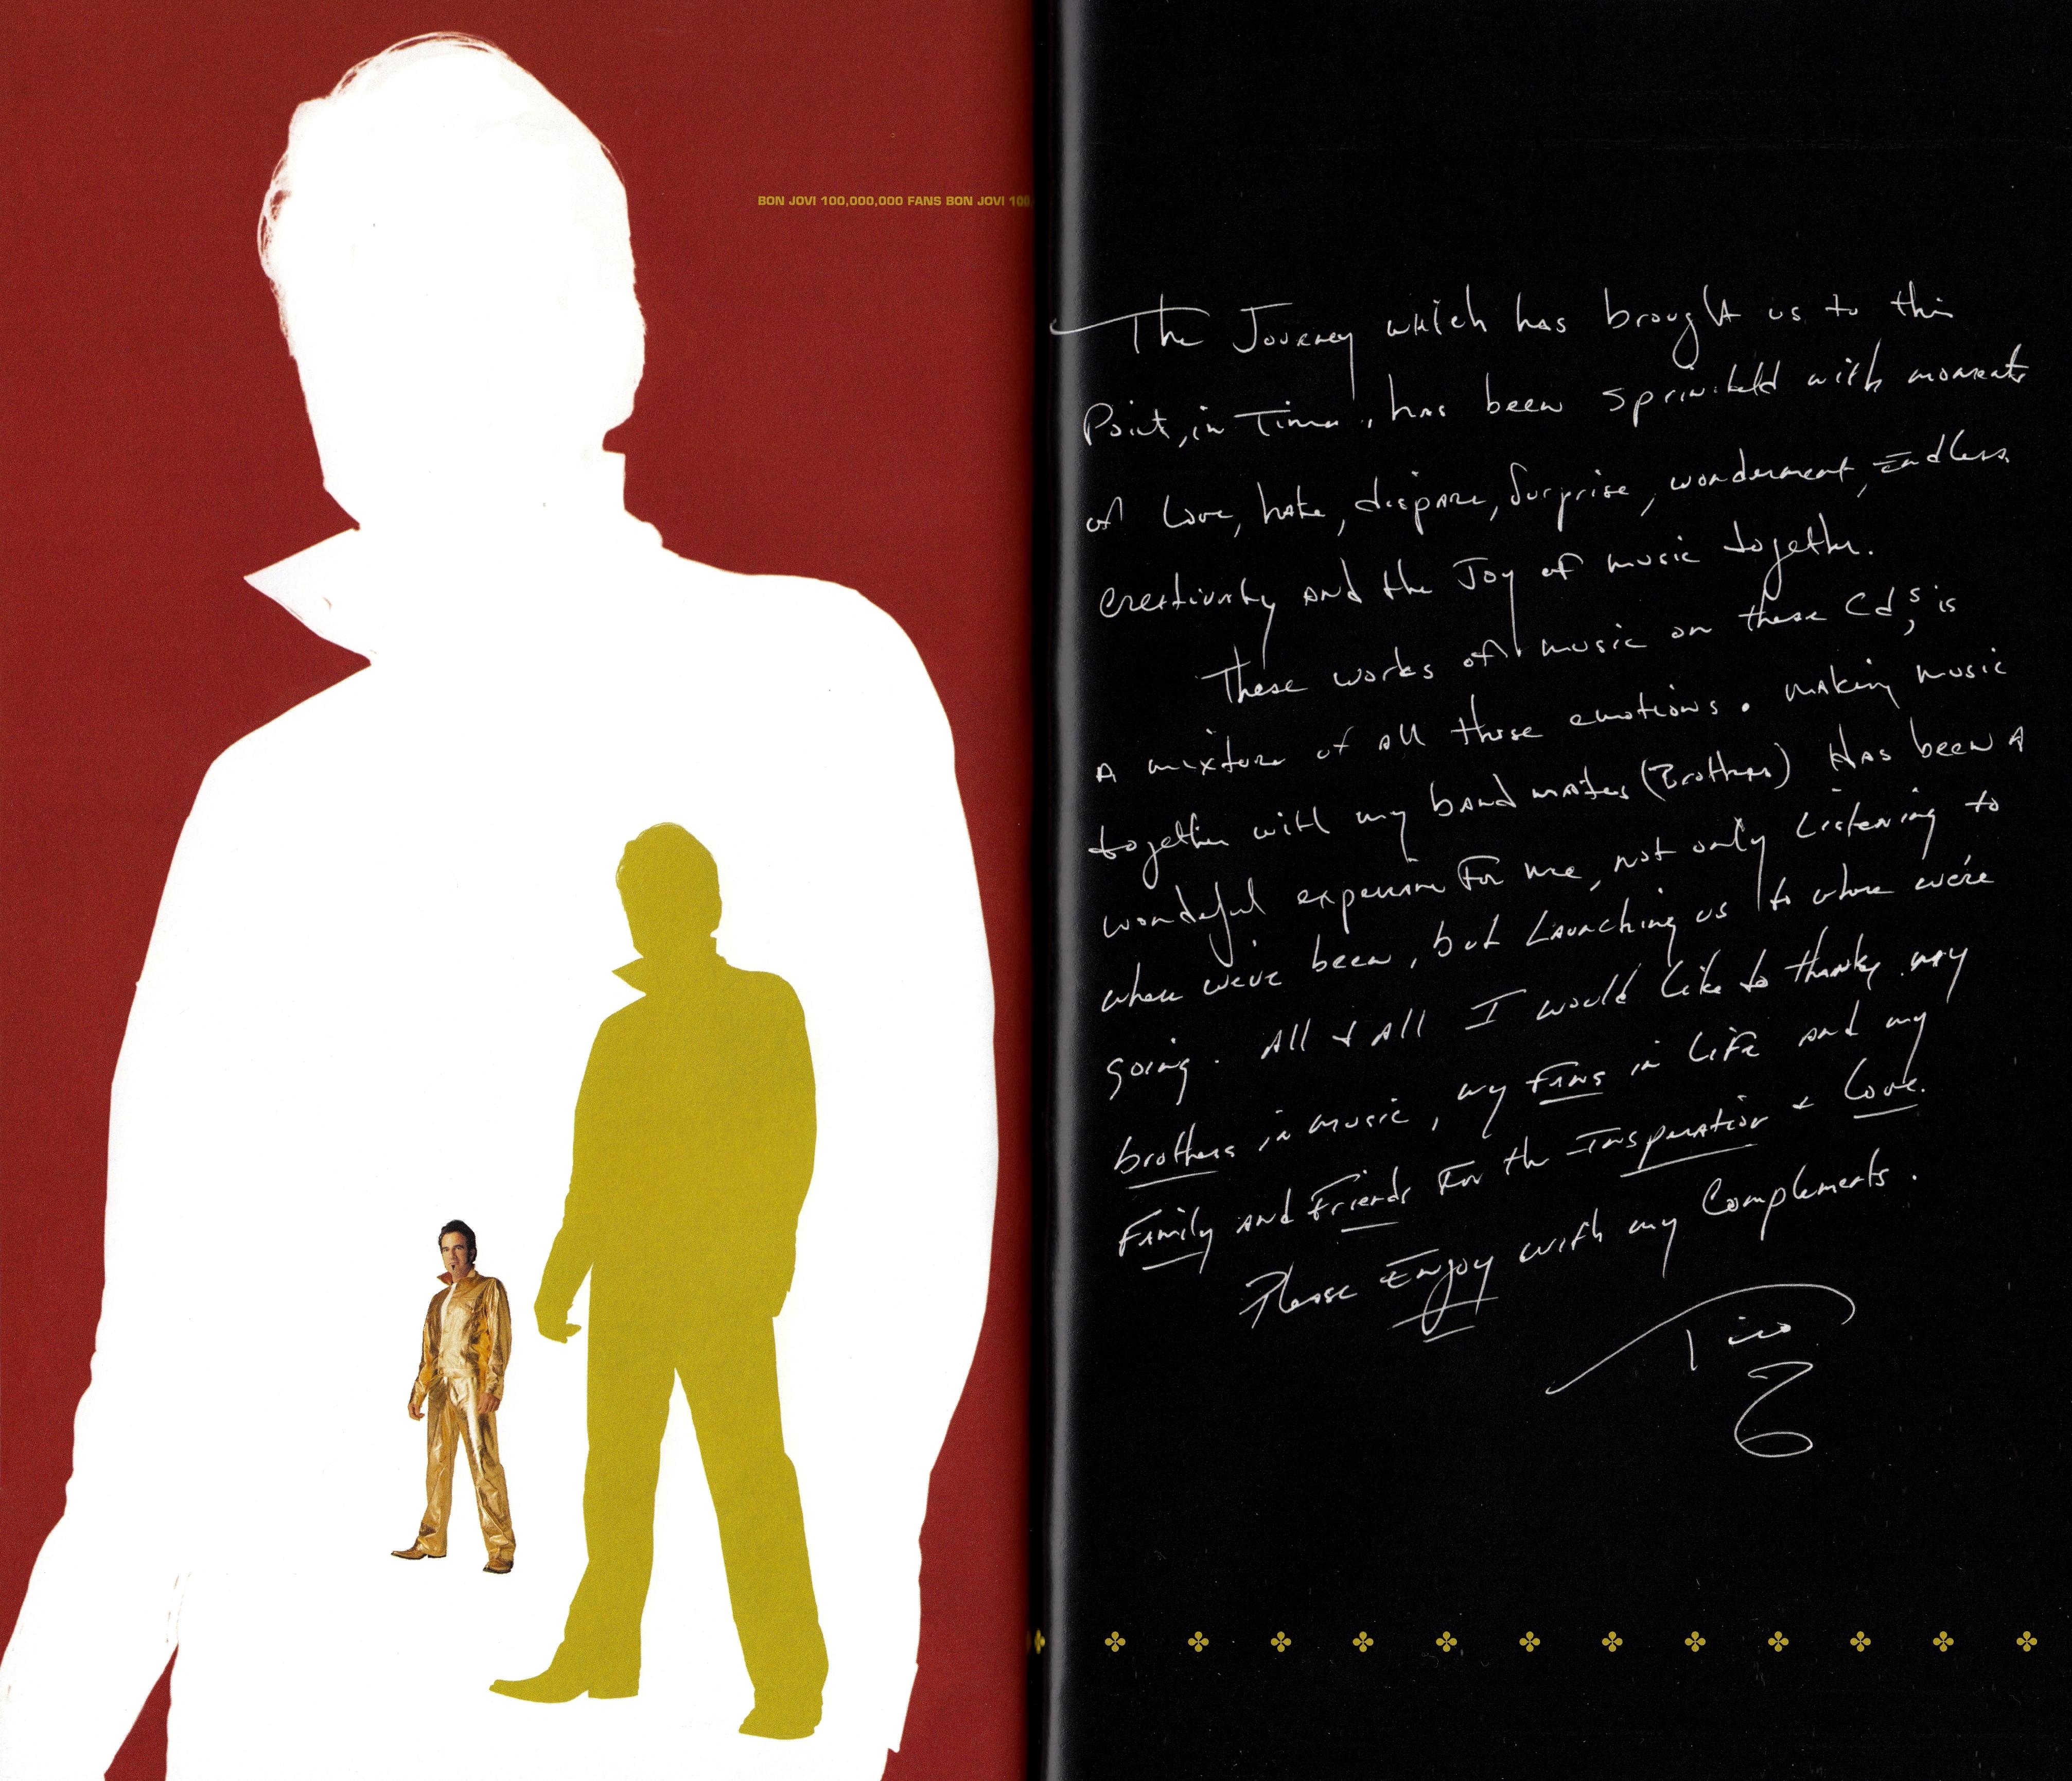 BON JOVI 100,000,000 FANS BON JOVI 100,
The Journey which has brought us to this
Point, in Time, has been sprinkeld with moments
of Love, hate, dispare, Surprise, wonderment, Endless
creativity and the Joy of music together.
These works of music on these Cd's, is
A mixture of All these emotions. making music
together with my band mates (Brothers) Has been A
wondeful experience For me, not only Listening to
where we've been, but Launching us to where we're
going. All & All I would like to thank my
brothers in music, my Fans in Life and my
Family and Friends For the Insperation & Love.
Please Enjoy with my Complements.
Tico